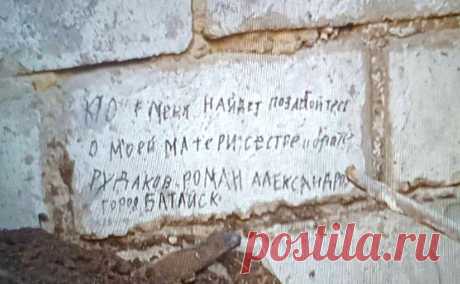 КТО меня найдет позаботтесь
о моей матери, сестре и брате
РУДАКОВ РОМАН АЛЕКСАНДР
город БАТАЙСК
postila.ru